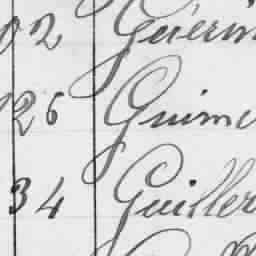 02 Guérin
126 Guime
34 Guiller